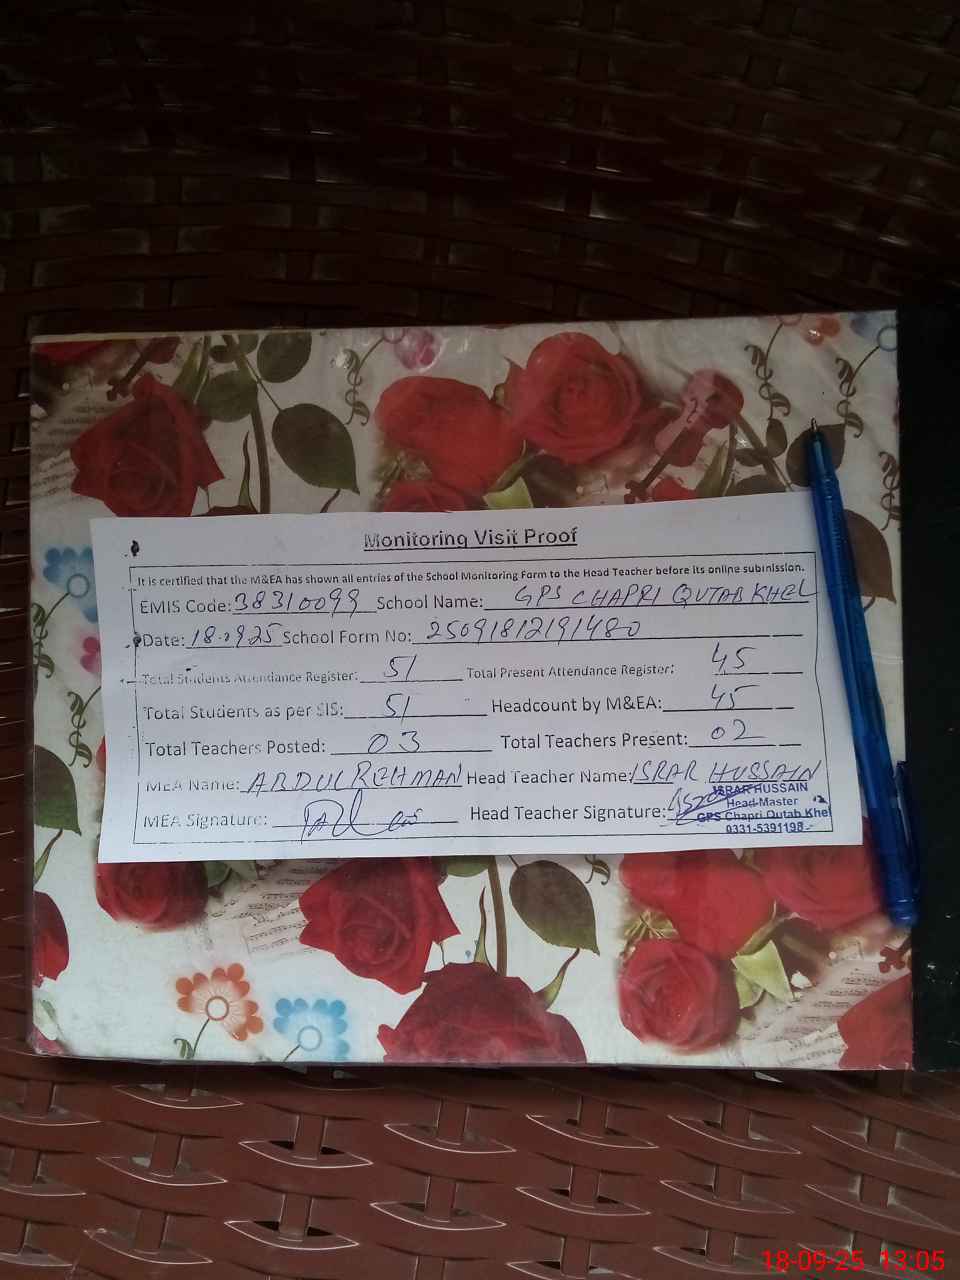 Monitoring Visit Proof
It is certified that the M&EA has shown all entries of the School Monitoring Form to the Head Teacher before its online submission.
EMIS Code: 38310099 School Name: GPS CHAPRI QUTAB KHEL
Date: 18.0925 School Form No: 25091812191480
Total Students Attendance Register: 51 Total Present Attendance Register: 45
Total Students as per SIS: 51 Headcount by M&EA: 45
Total Teachers Posted: 03 Total Teachers Present: 02
MEA Name: ABDUL REHMAN Head Teacher Name: ISRAR HUSSAIN
MEA Signature: Head Teacher Signature:
ISRAR HUSSAIN
Head Master
GPS Chapri Qutab Khel
0331-5391198
18-09-25 13:05